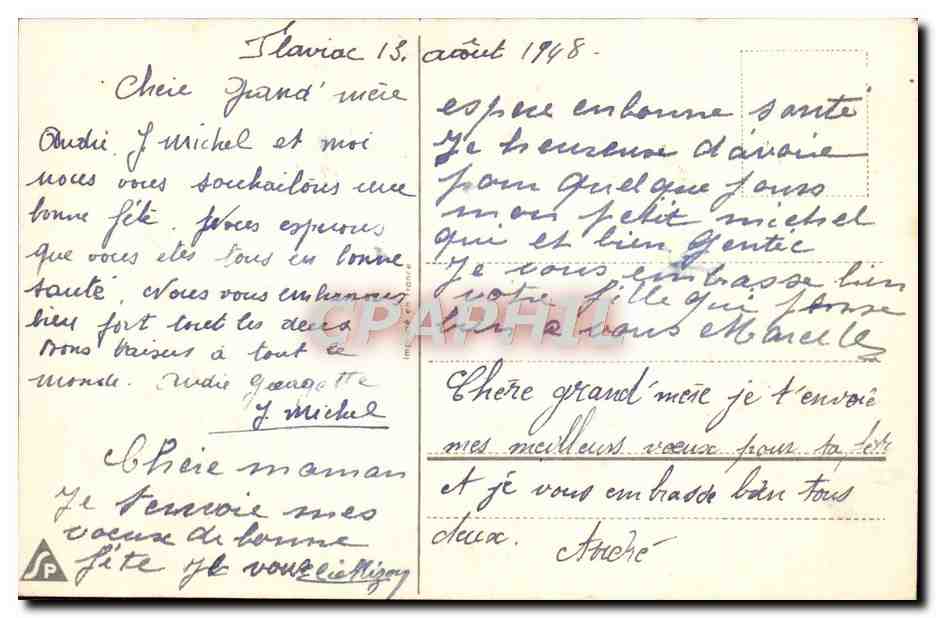 Flaviac 13. août 1948.
Chère Grand'mère
André. J Michel et moi
nous vous souhaitons une
bonne fête. Nous espérons
que vous etes tous en bonne
santé. Nous vous embrassons
bien fort tout les deux
Bons baisers à tout le
monde. André Georgette
J Michel
Chère maman
Je t'envoie mes
voeux de bonne
fête Je vous
espère en bonne santé
Je heureuse d'avoir
pour quelque jours
mon petit michel
qui et bien gentil
Je vous embrasse bien
votre fille qui pense
bien a vous Marcelle
Chère grand'mère je t'envoie
mes meilleurs voeux pour ta fête
et je vous embrasse bien tous
deux. André
Imprimé en France
CPAPHIL
SP